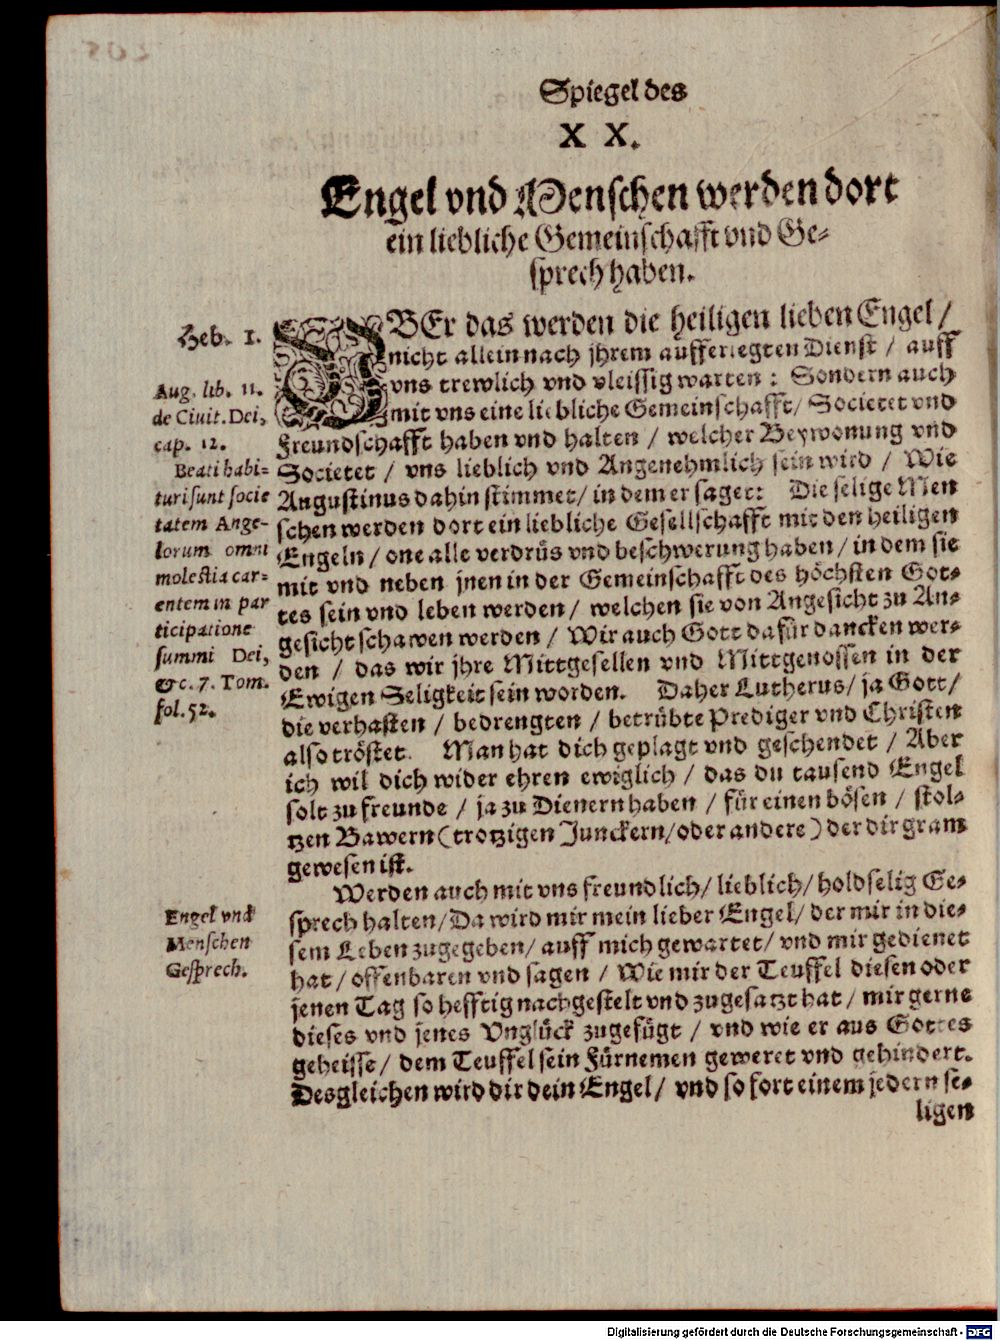 Spiegel des
XX.
Engel vnd Menschen werden dort
ein liebliche Gemeinschafft vnd Ge-
sprech haben.
Heb. 1.
Aug. lib. 11.
de Ciuit. Dei,
cap. 12.
Beati habi-
turi sunt socie
tatem Ange-
lorum omni
molestia car-
entem in par
ticipatione
summi Dei,
&c. 7. Tom.
fol. 52.
VBEr das werden die heiligen lieben Engel /
nicht allein nach jhrem aufferlegten Dienst / auff
vns trewlich vnd vleissig warten : Sondern auch
mit vns eine liebliche Gemeinschafft / Societet vnd
Freundschafft haben vnd halten / welcher Beywonung vnd
Societet / vns lieblich vnd Angenehmlich sein wird / Wie
Augustinus dahin stimmet / in dem er saget: Die selige Men
schen werden dort ein liebliche Gesellschafft mit den heiligen
Engeln / one alle verdrüs vnd beschwerung haben / in dem sie
mit vnd neben jnen in der Gemeinschafft des höchsten Got-
tes sein vnd leben werden / welchen sie von Angesicht zu An-
gesicht schawen werden / Wir auch Gott dafür dancken wer-
den / das wir jhre Mittgesellen vnd Mittgenossen in der
Ewigen Seligkeit sein worden. Daher Lutherus / ja Gott /
die verhasten / bedrengten / betrübte Prediger vnd Christen
also tröstet. Man hat dich geplagt vnd geschendet / Aber
ich wil dich wider ehren ewiglich / das du tausend Engel
solt zu freunde / ja zu Dienern haben / für einen bösen / stol-
tzen Bawern (trotzigen Junckern / oder andere) der dir gram
gewesen ist.
Engel vnd
Menschen
Gesprech.
Werden auch mit vns freundlich / lieblich / holdselig Ge-
sprech halten / Da wird mir mein lieber Engel / der mir in die-
sem Leben zugegeben / auff mich gewartet / vnd mir gedienet
hat / offenbaren vnd sagen / Wie mir der Teuffel diesen oder
jenen Tag so hefftig nachgestelt vnd zugesatzt hat / mir gerne
dieses vnd jenes Vnglück zugefügt / vnd wie er aus Gottes
geheisse / dem Teuffel sein Fürnemen geweret vnd gehindert.
Desgleichen wird dir dein Engel / vnd so fort einem jedern se-
ligen
Digitalisierung gefördert durch die Deutsche Forschungsgemeinschaft - DFG